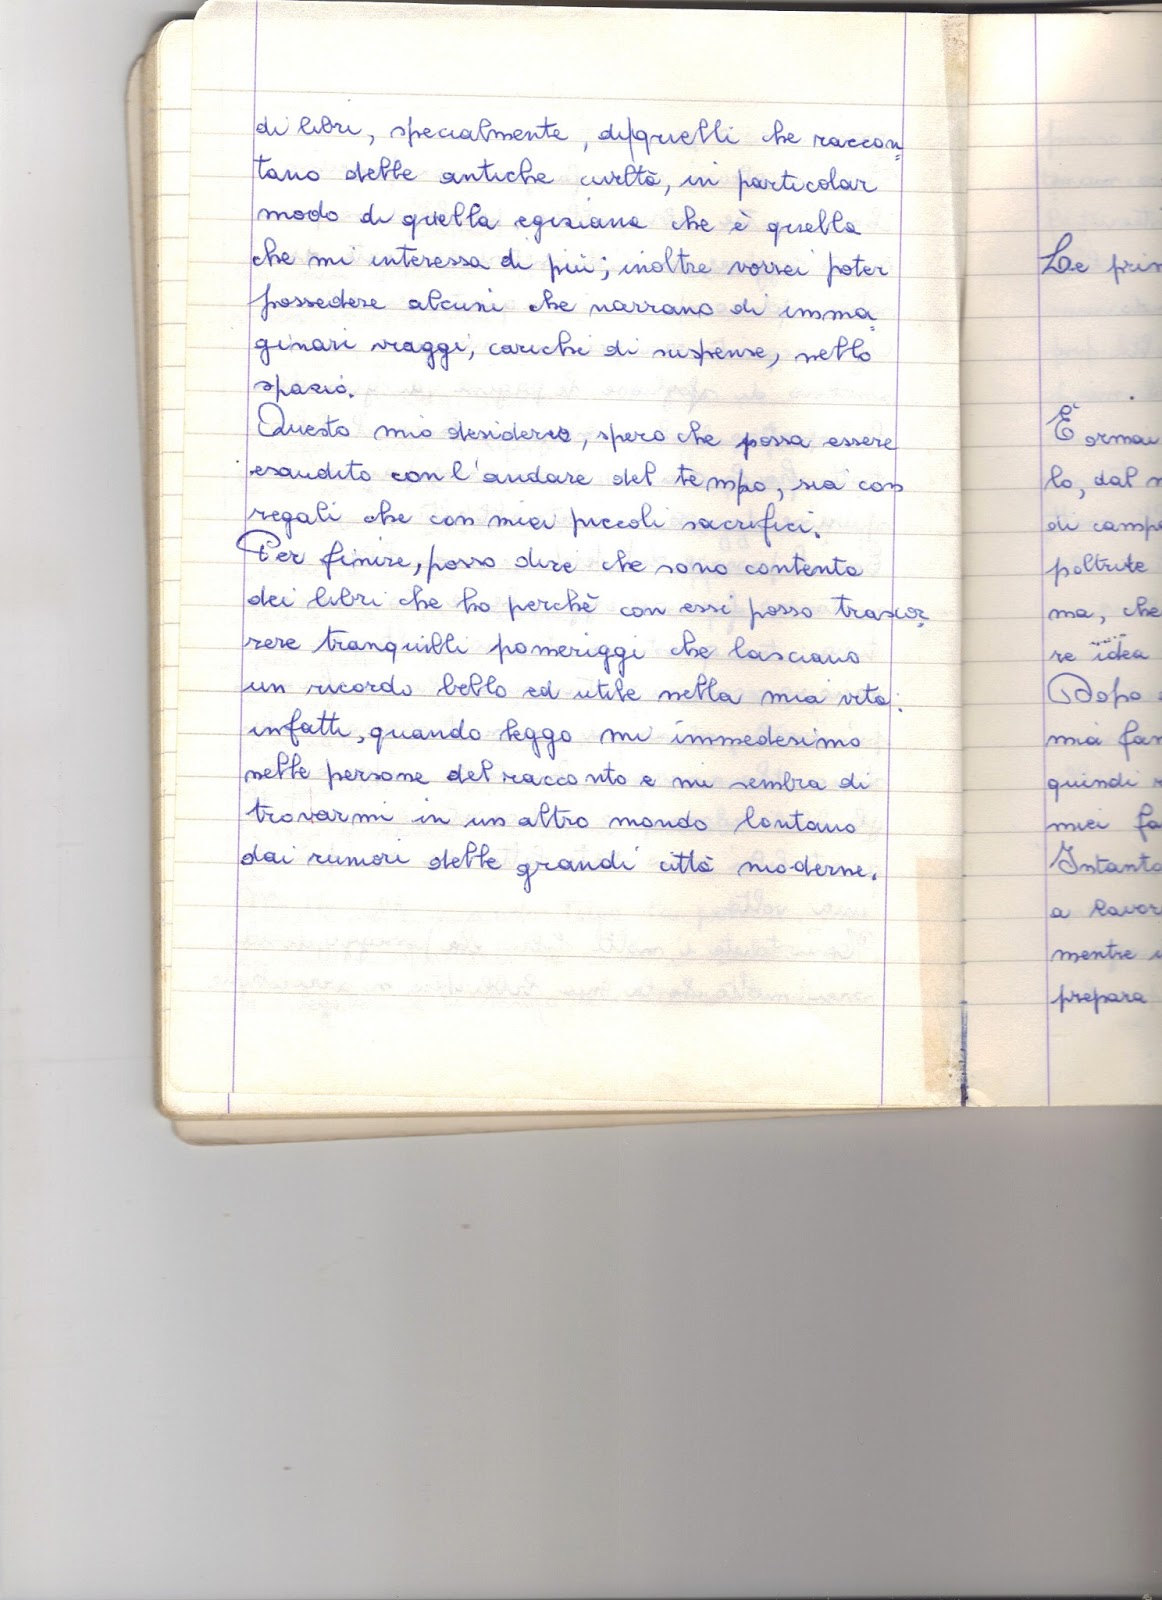 di libri, specialmente, di quelli che raccon=
tano delle antiche civiltà, in particolar
modo di quella egiziana che è quella
che mi interessa di più; inoltre vorrei poter
possedere alcuni che narrano di imma=
ginari viaggi, carichi di suspense, nello
spazio.
Questo mio desiderio, spero che possa essere
esaudito con l'andare del tempo, sia con
regali che con miei piccoli sacrifici.
Per finire, posso dire che sono contento
dei libri che ho perchè con essi posso trascor=
rere tranquilli pomeriggi che lasciano
un ricordo bello ed utile nella mia vita:
infatti, quando leggo mi immedesimo
nelle persone del racconto e mi sembra di
trovarmi in un altro mondo lontano
dai rumori delle grandi città moderne.
Le prim
È ormai
lo, dal
di camp
poltrite
ma, che
re idea
Dopo
mia fam
quindi
miei fa
Intanto
a lavor
mentre
prepara